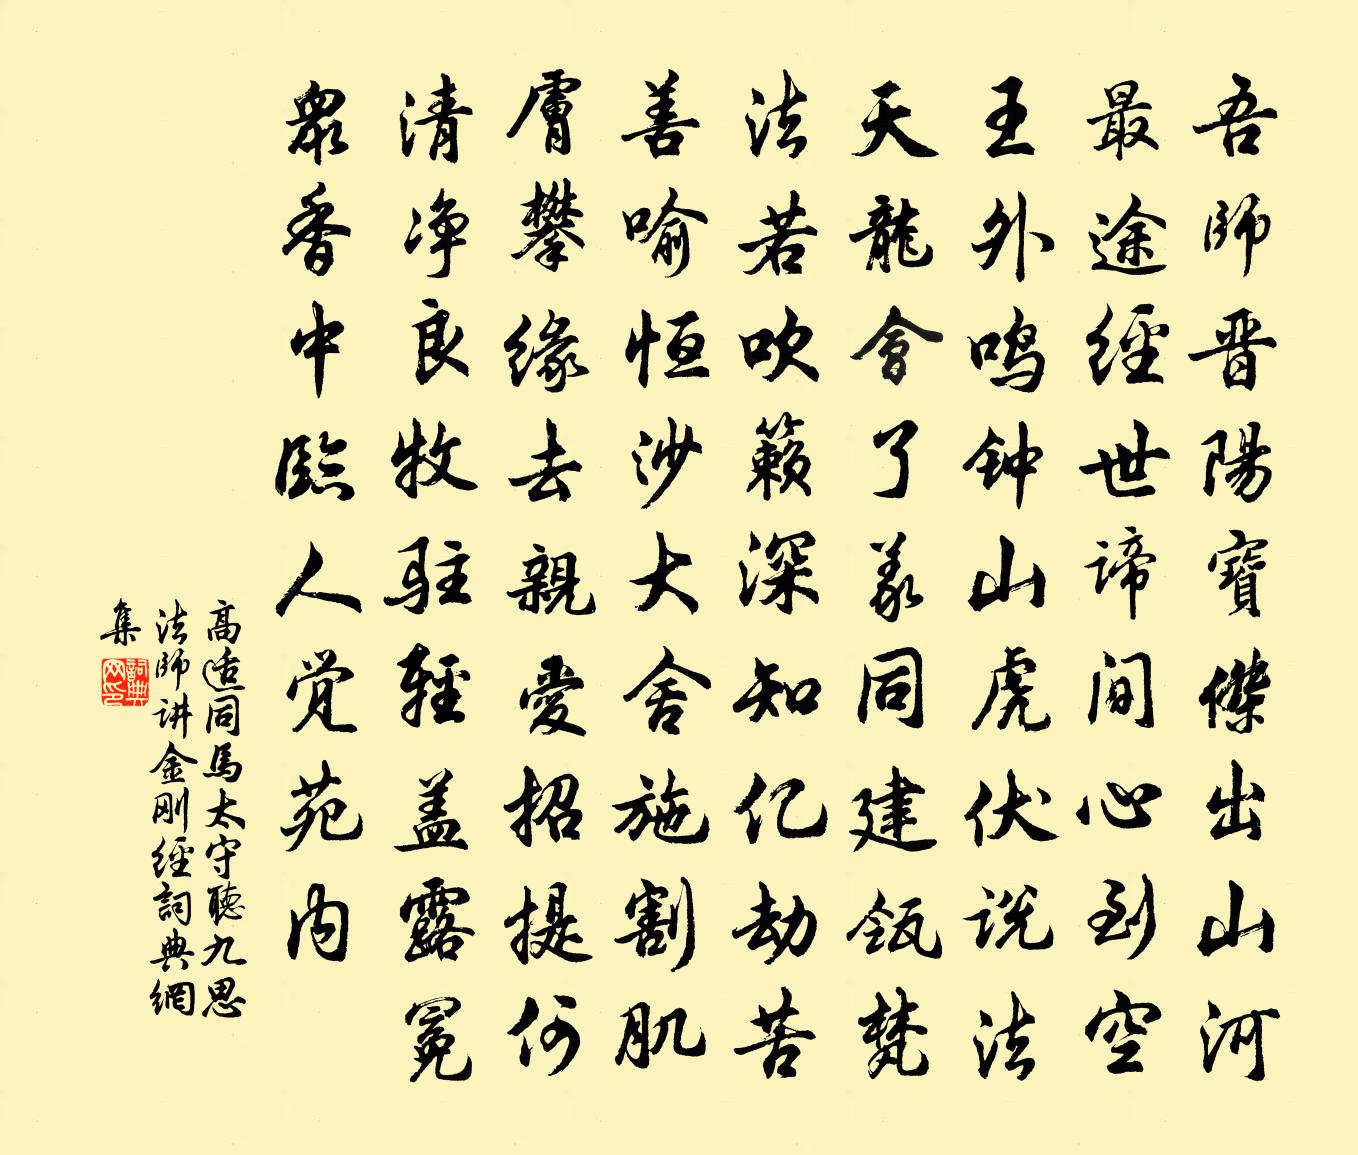 吾師晋陽寶傑出山河
最途經世諦間心到空
王外鸣钟山虎伏说法
天龍會了義同建瓴梵
法若吹籁深知亿劫苦
善喻恒沙大舍施割肌
膚攀缘去親愛招提何
清净良牧驻輕盖露冕
眾香中臨人觉苑内
高适同馬太守聽九思
法師讲金刚經詞典網
集
詞典网印